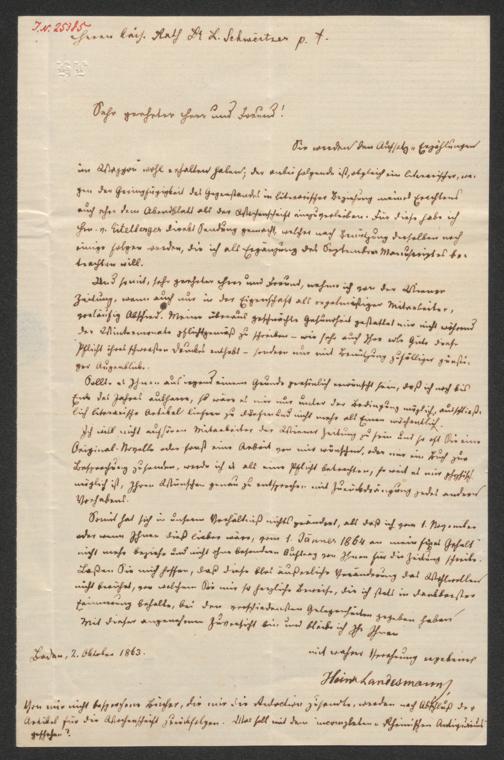 I.N. 25385
Herrn kais. Rath Dr L. Schweitzer p. t.
Sehr geehrter Herr und Freund!
Sie werden den Aufsatz „Erzählungen
im Waggon" wohl erhalten haben; der anbei folgende ist, obgleich ein literarischer, we-
gen der Geringfügigkeit des Gegenstandes in literarischer Beziehung meines Erachtens
auch eher dem Abendblatt als der Wochenschrift einzuverleiben. Für diese habe ich
Hrn. v. Eitelberger direkt Sendung gemacht, welcher nach Benützung derselben noch
einige folgen werden, die ich als Ergänzung des September-Manuscriptes be-
trachten will.
Und somit, sehr geehrter Herr und Freund, nehme ich von der Wiener
Zeitung, wenn auch nur in der Eigenschaft als regelmäßiger Mitarbeiter,
vorläufig Abschied. Meine überaus geschwächte Gesundheit gestattet mir nicht während
der Wintermonate pflichtgemäß zu schreiben – wie sehr auch Ihre edle Güte diese
Pflicht ihres schwersten Druckes enthebt – sondern nur mit Benützung zufälliger günsti-
ger Augenblicke.
Sollte es Ihnen aus irgend einem Grunde persönlich erwünscht sein, daß ich noch bis
Ende des Jahres ausharre, so wäre es mir nur unter der Bedingung möglich, ausschließ-
lich literarische Artikel liefern zu dürfen und nicht mehr als Einen wöchentlich.
Ich will nicht aufhören Mitarbeiter der Wiener Zeitung zu sein und so oft Sie eine
Original-Novelle oder sonst eine Arbeit von mir wünschen, oder mir ein Buch zur
Besprechung zusenden, werde ich es als eine Pflicht betrachten, so weit es mir physisch
möglich ist, Ihren Wünschen genau zu entsprechen mit Zurückdrängung jedes andern
Vorhabens.
Somit hat sich in unserm Verhältniß nichts geändert, als daß ich vom 1. November
oder wenn Ihnen dieß lieber wäre, vom 1. Jänner 1864 an mein fixes Gehalt
nicht mehr beziehe und nicht ohne besondern Auftrag von Ihnen für die Zeitung schreibe.
Lassen Sie mich hoffen, daß diese blos äußerliche Veränderung das Wohlwollen
nicht berührt, von welchem Sie mir so herzliche Beweise, die ich stets in dankbarster
Erinnerung behalte, bei den verschiedensten Gelegenheiten gegeben haben!
Mit dieser angenehmen Zuversicht bin und bleibe ich Ihnen
mit wahrer Verehrung ergebener
Baden, 2. Oktober 1863.
Heinr. Landesmann
Von mir nicht besprochene Bücher, die mir die Redaction zusandte, werden nach Abschluß der
Artikel für die Wochenschrift zurückfolgen. Was soll mit dem incompleten „Rheinischen Antiquarius"
geschehen?